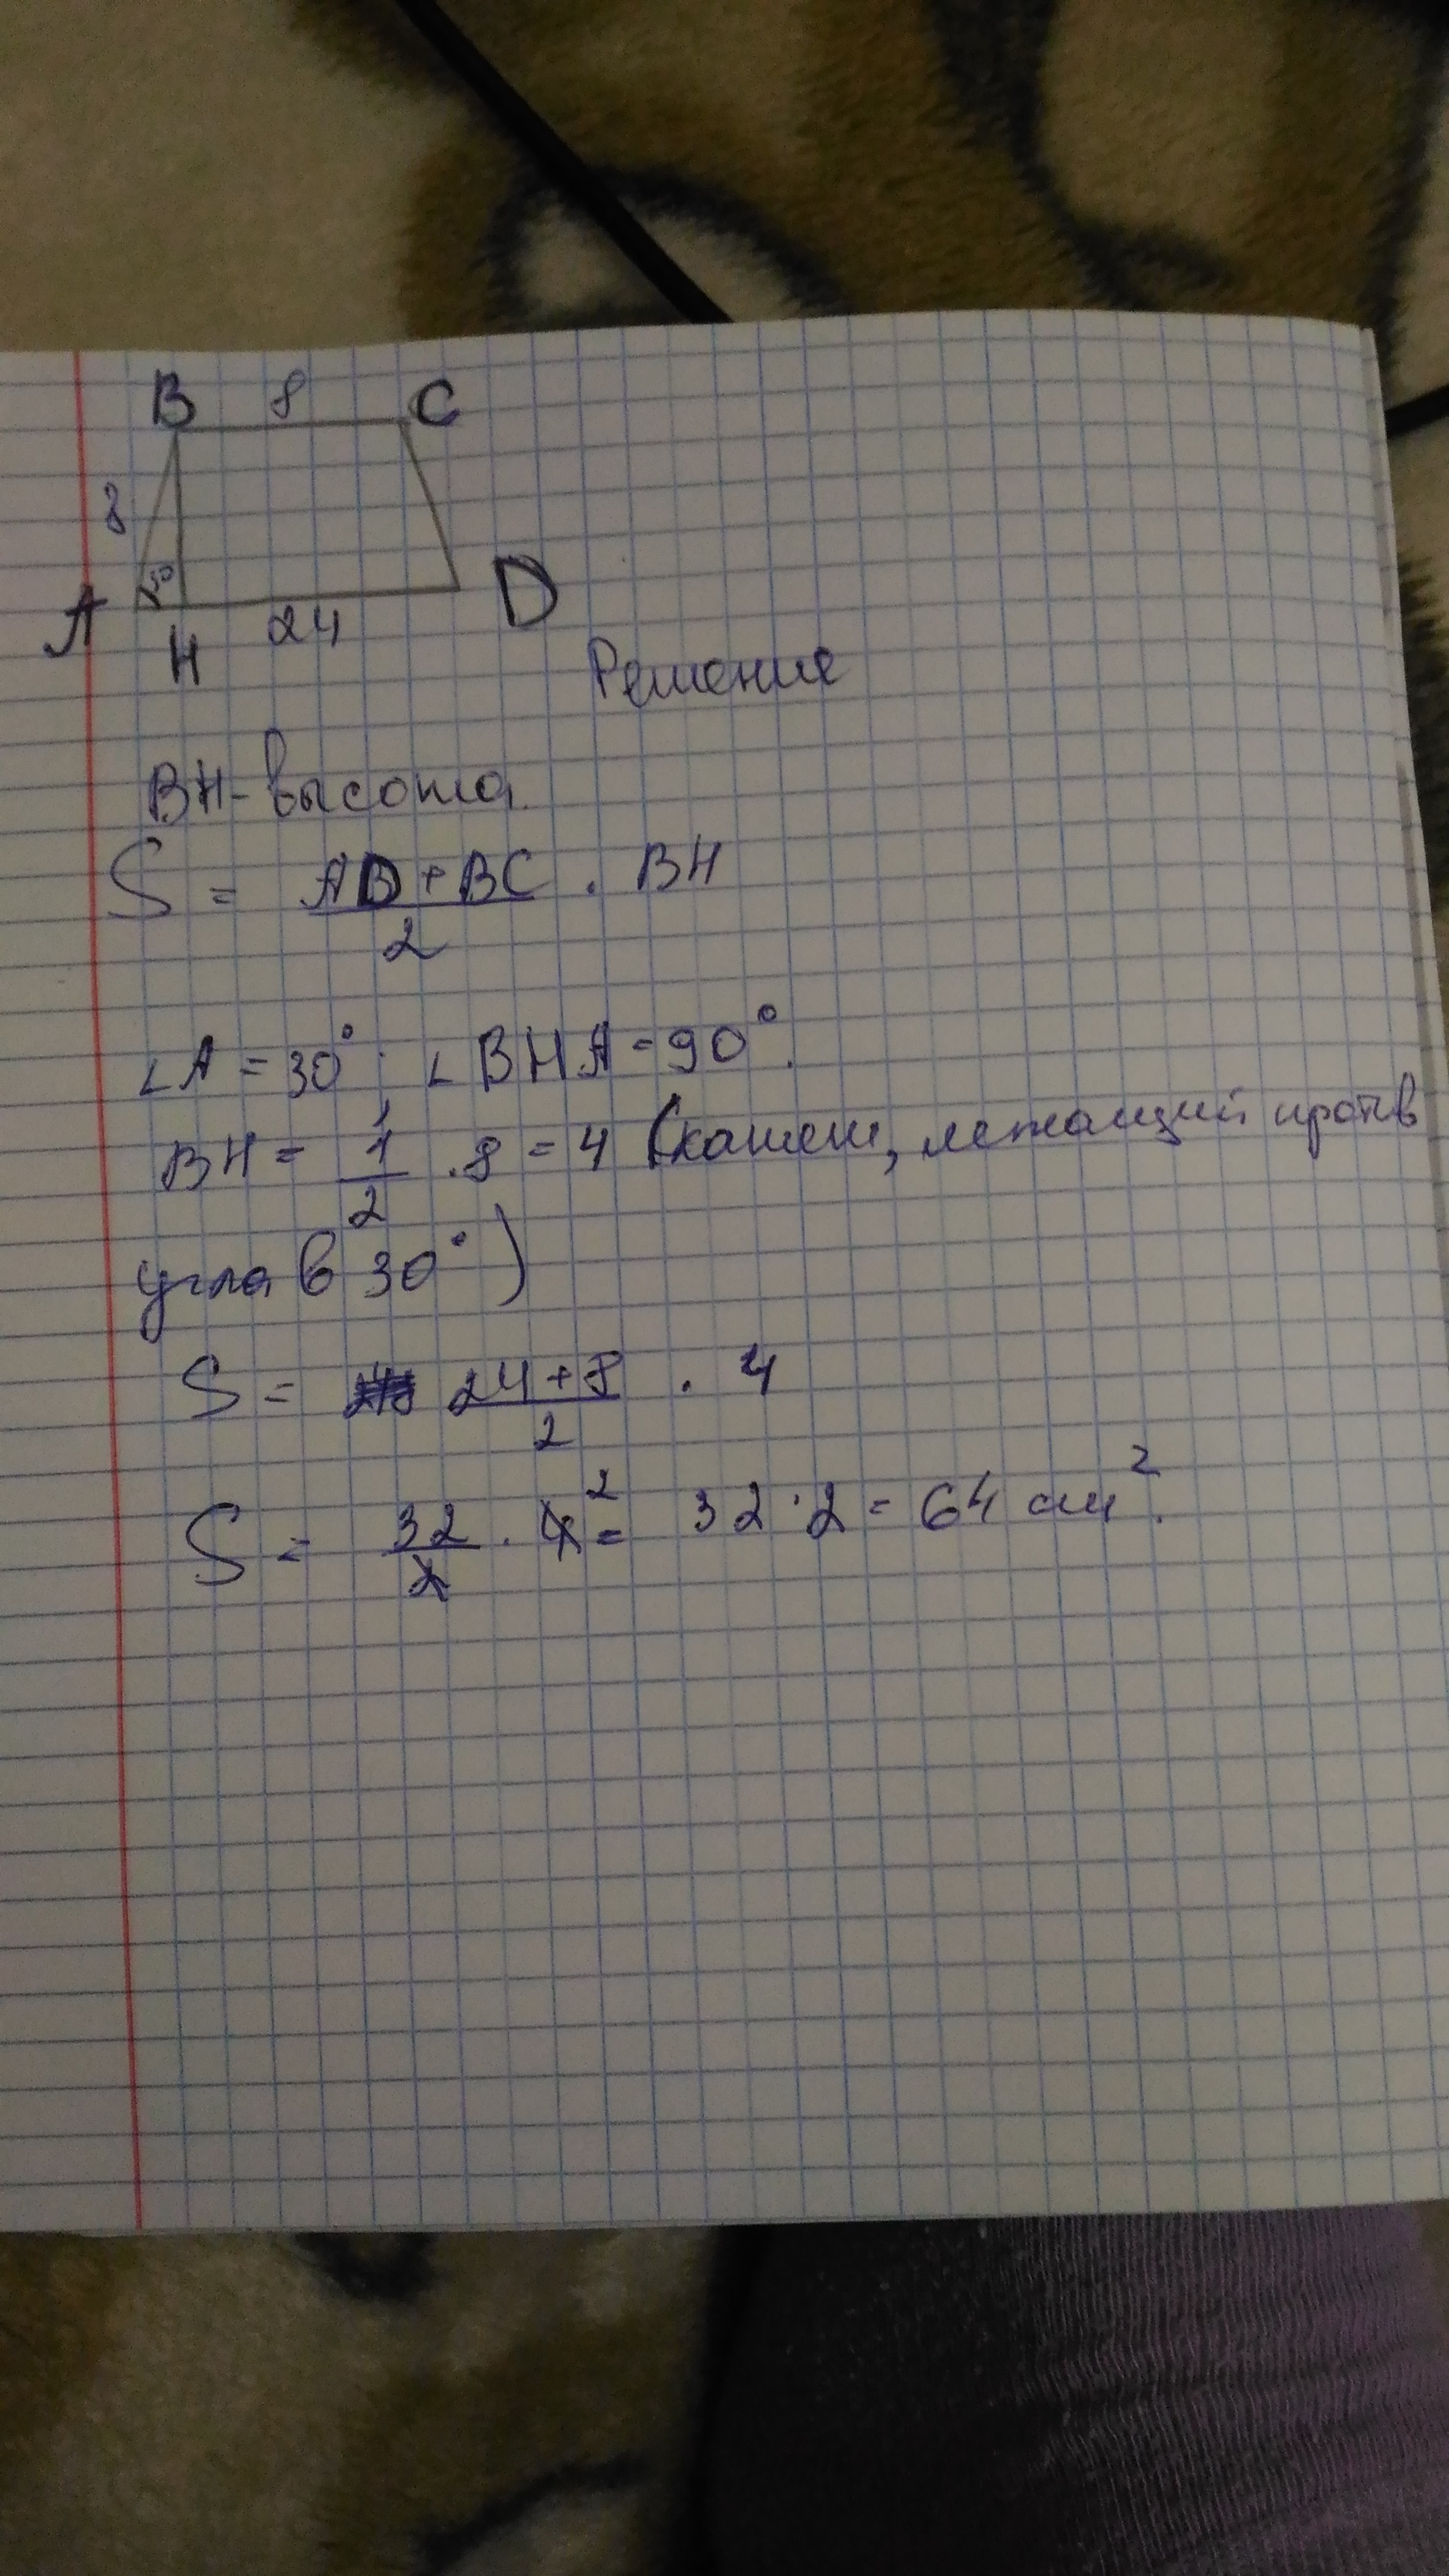 B 8 C
8
30°
A H 24 D
Решение
BH-высота.
S = AD+BC/2 . BH
∠A = 30°; ∠BHA=90°.
BH = 1/2 .8 = 4 (катет, лежащий против
угла в 30°)
S = 24+8/2 . 4
S = 32/2 . 4² = 32·2 = 64 см².